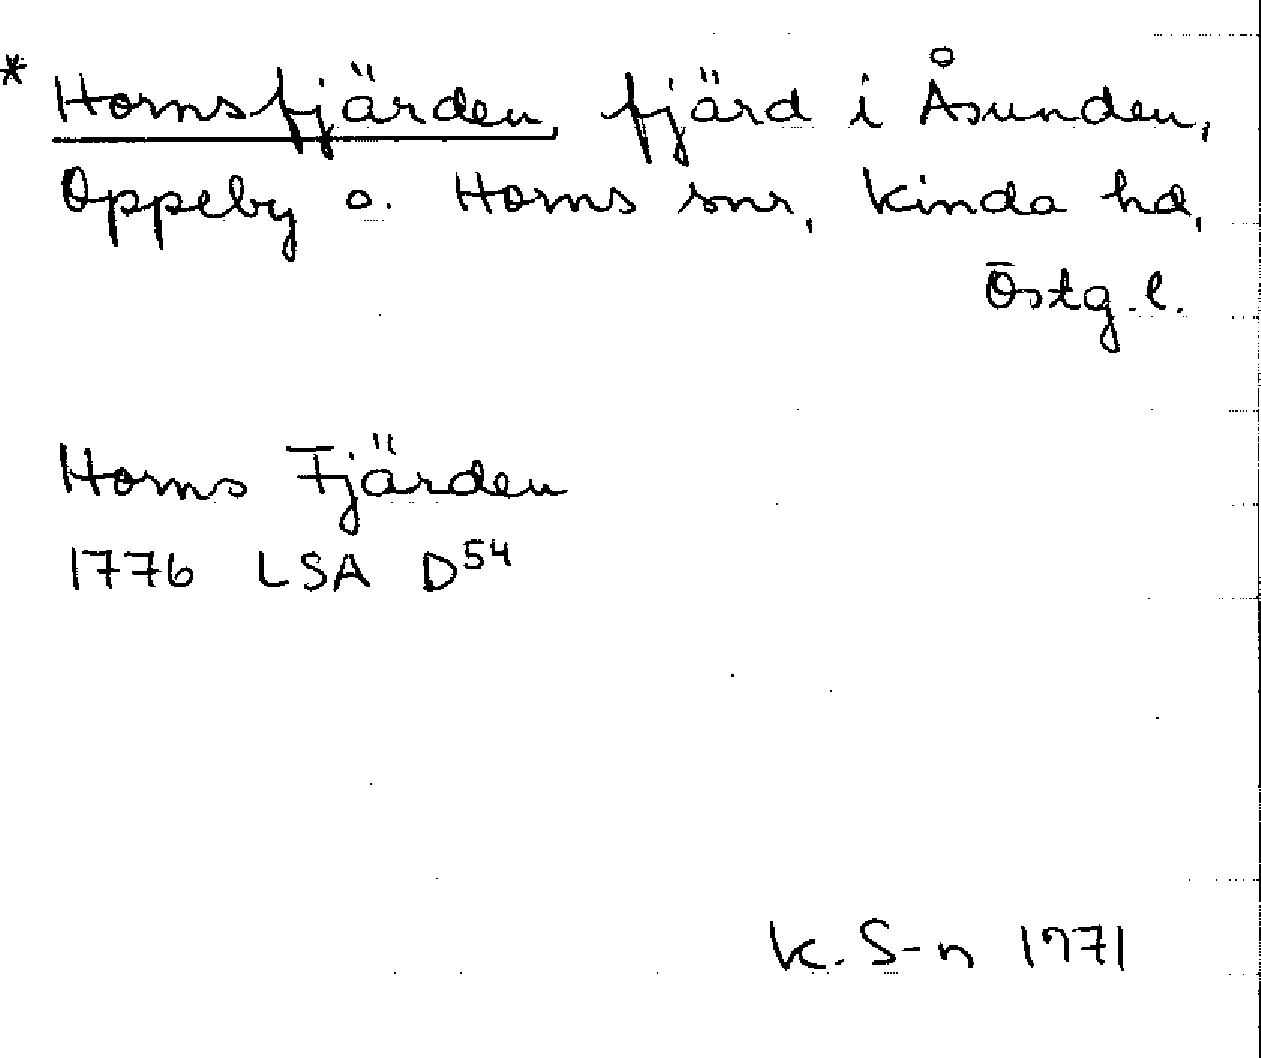 * Hornsfjärden, fjärd i Åsunden,
Oppeby o. Horns snr, Kinda hd,
Östg. l.
Horns Fjärden
1776 LSA D54
K. S-n 1971